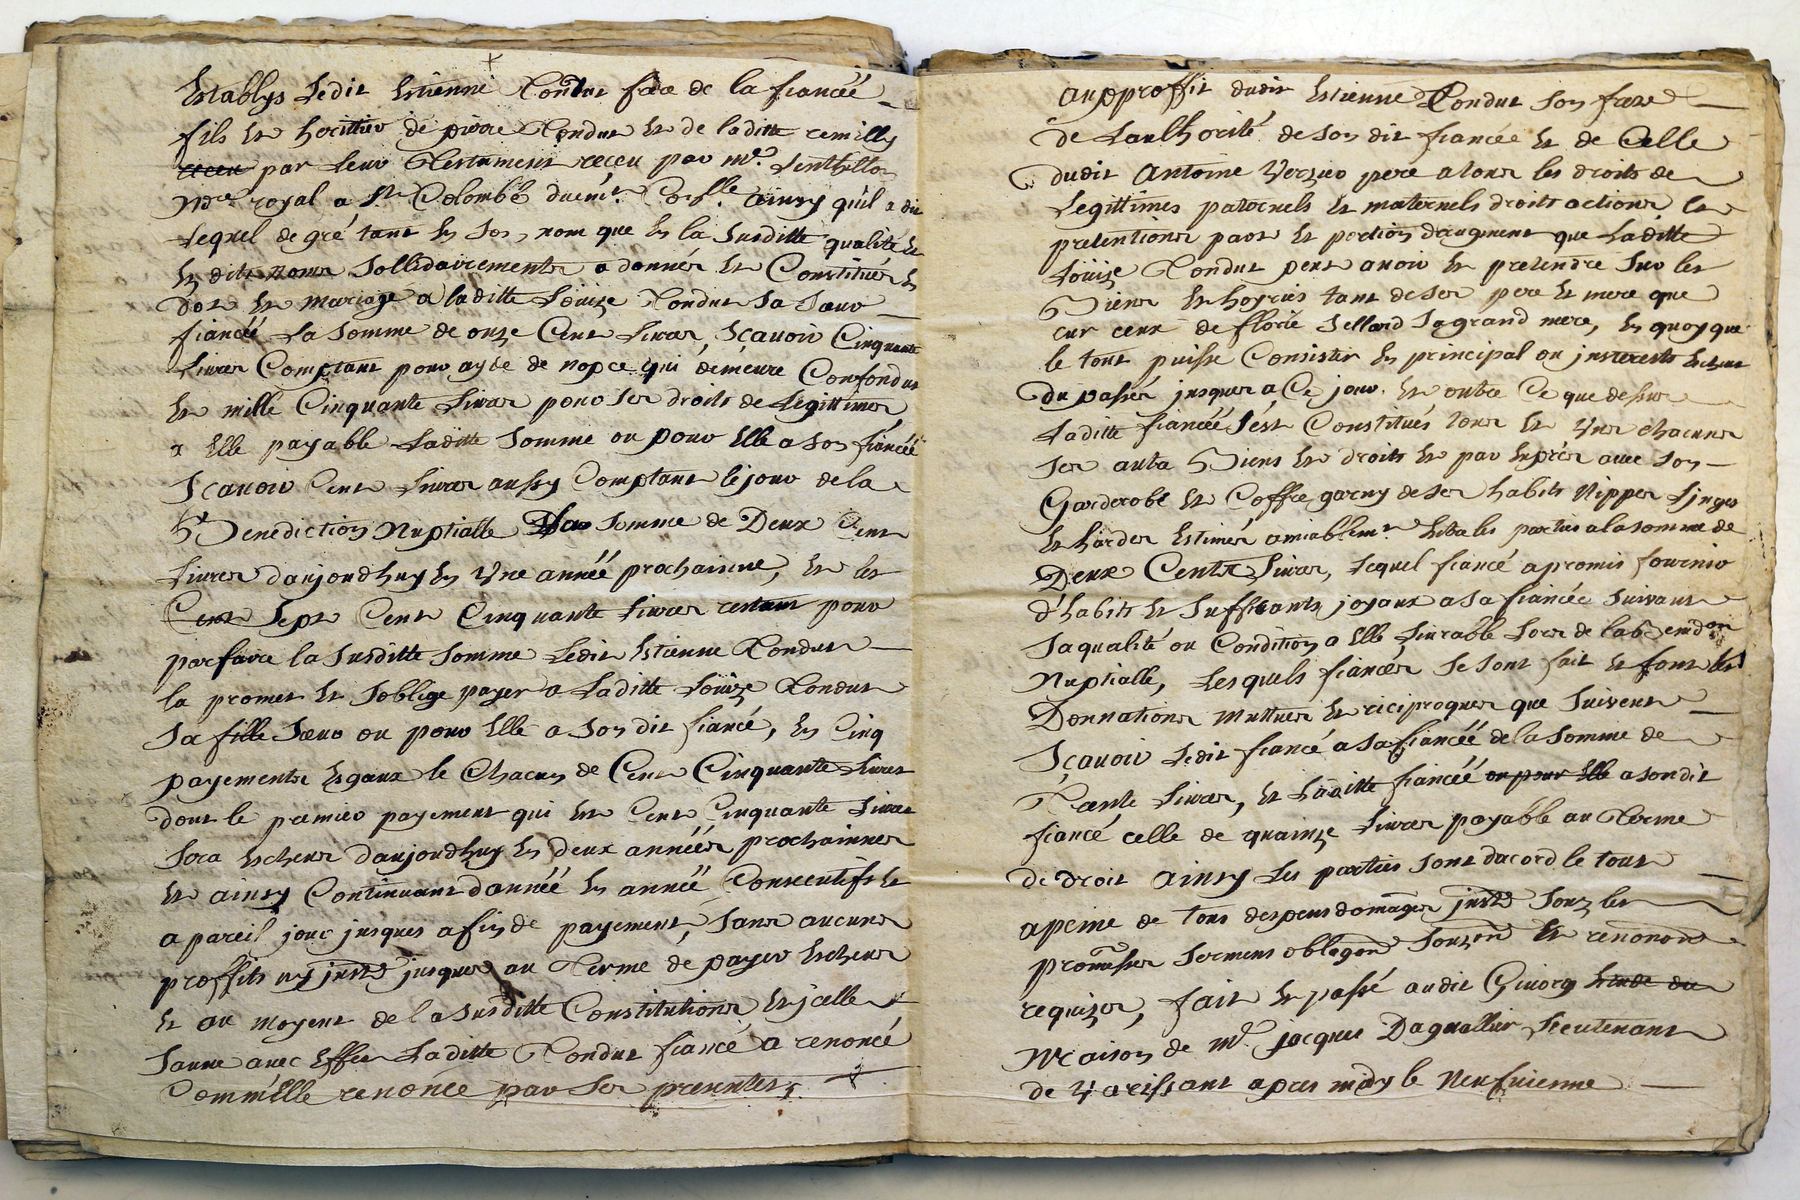 Establys Ledit Estienne Rondut frere de la fiancéé
fils et herittier de pierre Rondut et de laditte remilly
receu par Leur Testament receu par me. Lenthillon
Nore. royal a Ste Colombe duemt. Conll. ainsy qu'il a dit
Lequel de gré tant En Son nom que En la Susditte qualité et
Es dits noms Sollidairements a donnés et Constitués En
Dot et mariage a laditte Loüize Rondut Sa Sœur
fiancéé La Somme de onze Cent Livres, Sçavoir Cinquante
Livres Comptant pour ayde de nopce qui deméure Confondus
et mille Cinquante Livres pour Ses droits de Legittimes
a Elle payable Laditte Somme ou pour Elle a Son fiancéé
Sçavoir Cent Livres aussy Comptant le jour de la
Benediction Nuptialle La Somme de Deux Cent
Livres daujourdhuy En Une annéé prochainne, et les
Cent Sept Cent Cinquante Livres restant pour
parfaire la Susditte Somme Ledit Estienne Rondut
la promet et Soblige payer a Laditte Loüize Rondut
Sa fille Sœur ou pour Elle a Son dit fiancé, En Cinq
payements Egaux le Chacun de Cent Cinquante Livres
dont le premier payement qui est Cent Cinquante Livres
Sera Escheus daujourdhuy En deux annéés prochainnes
et ainsy Continuant d'annéé En annéé Consecutifs et
a pareil jour jusques a fin de payement, Sans aucuns
proffits ny jnsts jusques au Terme de payer Escheus
et au moyent de la Susditte Constitutions et jcelle
Sauve avec Effect Laditte Rondut fiancé a renoncé
Comm'Elle renonce par Ses presentes,
Au proffit dudit Estienne Rondut Son frere
de Lauthorité de Son dit fiancée et de Celle
dudit Antoine pere a tous les droits de
Legittimes paternels et maternels droits actions et
pretentions part et portion d'augment que Laditte
Loüize Rondut peut avoir et pretendre Sur les
Biens et hoyries tant de Ses pere et mere que
sur ceux de florie Sellard Sa grand mere, En quoy que
le tout puisse Consister En principal ou jnterests Escheus
du passés jusques a Ce jour. et outre Ce que dessus
Laditte fiancéé S'ést Constitués tous et Uns chacuns
Ses autre Biens et droits et par Exprès avec Son
Garderobe et Coffre garny de Ses habits Nippes Linges
et hardes Estimés amiablemt. Entre les parties a la somme de
Deux Cents Livres, Lequel fiancé a promis fournir
d'habits et Suffisants joyaux a Sa fiancée Suivant
Sa qualité ou Condition a Elle Livrable Lors de la benedon
Nuptialle, Lesquels fiancés Se Sont fait et font les
Donnations Muttues et reciproques que Suivent
Sçavoir Ledit fiancé a Sa fiancéé de la Somme de
Trente Livres, et Laditte fiancéé ou pour Elle a son dit
fiancé celle de quainze Livres payable au Terme
de droit Ainsy Les parties Sont dacord le tout
a peine de tous despens domages jnsts Souz les
promesses Sermens obligons Soumons et renonons
requizes, fait et passé audit Givorg Etude du
Maison de Mr. Jacques Daguallier Lieutenant
de Varissant apres midy le Neufvienne